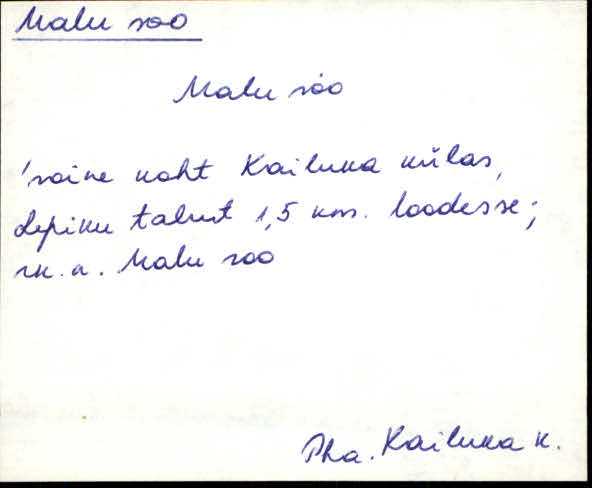 Malu soo
Malu sòo
'soine koht Kailuka külas,
Lepiku talust 1,5 km. loodesse;
rk. n. Malu soo
Pha. Kailuka k.